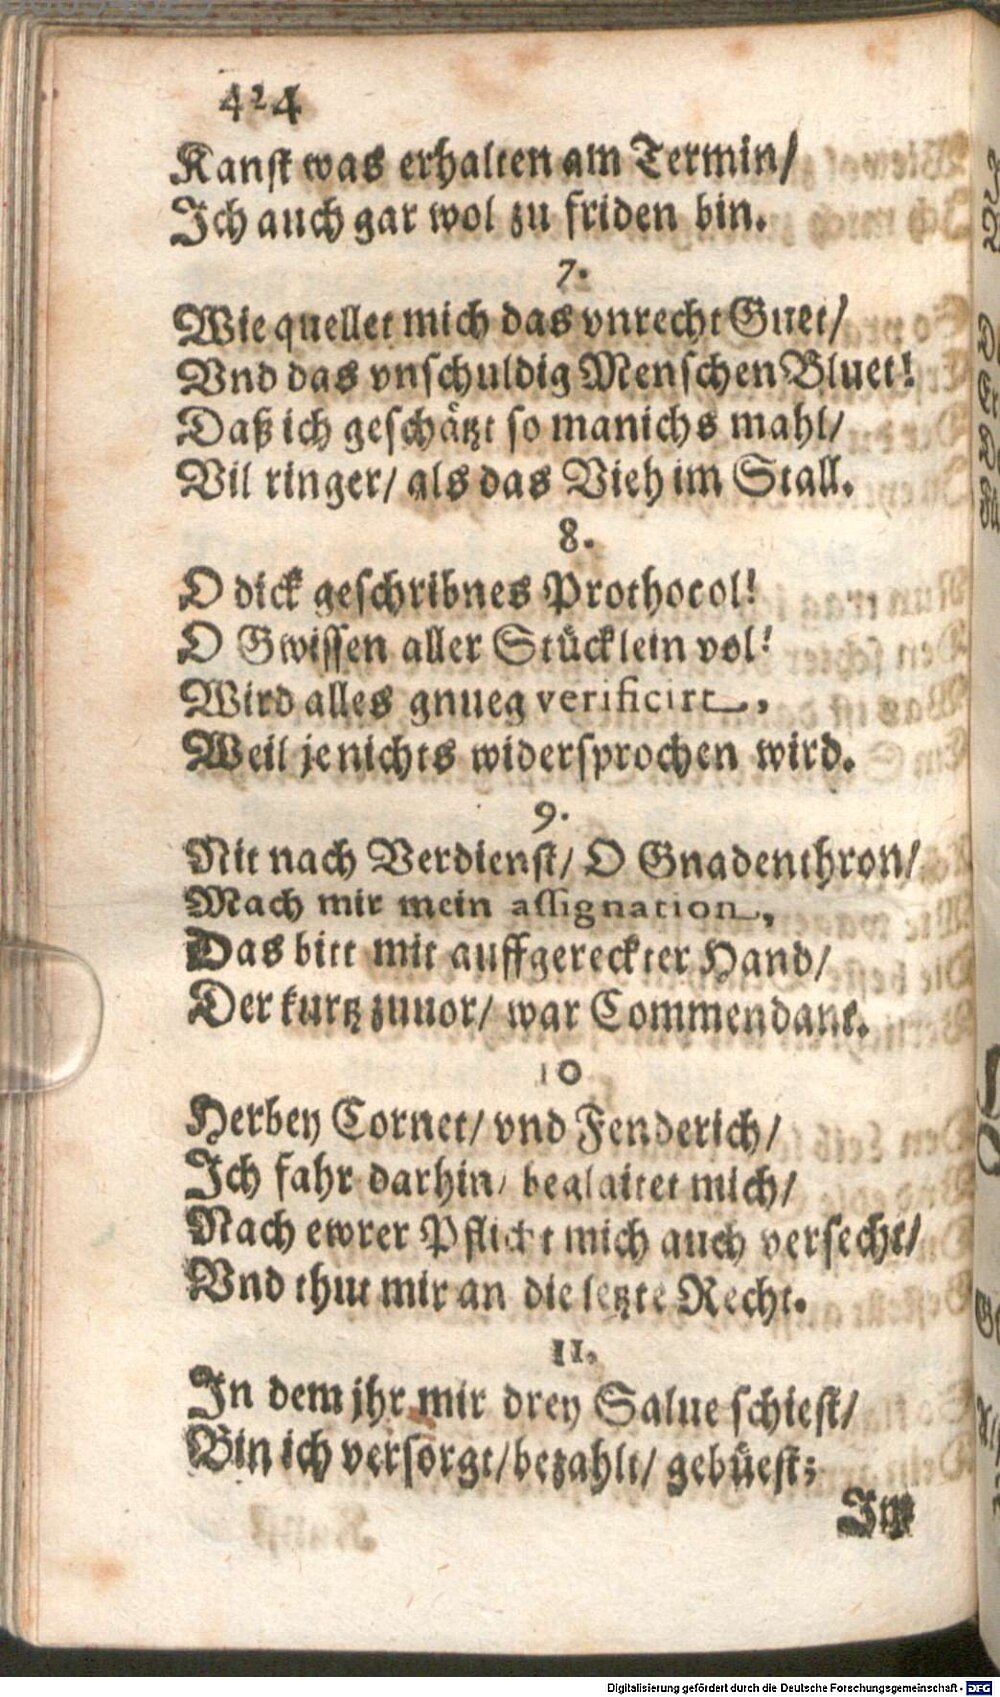 424
Kanst was erhalten am Termin/
Ich auch gar wol zu friden bin.
7.
Wie quellet mich das vnrecht Guet/
Vnd das vnschuldig Menschen Bluet!
Daß ich geschätzt so manichs mahl/
Vil ringer/ als das Vieh im Stall.
8.
O dick geschribnes Prothocol!
O Gwissen aller Stücklein vol!
Wird alles gnueg verificirt,
Weil je nichts widersprochen wird.
9.
Nit nach Verdienst/ O Gnadenthron/
Mach mir mein assignation,
Das bitt mit auffgereckter Hand/
Der kurtz zuuor/ war Commendant.
10
Herbey Cornet/ vnd Fenderich/
Ich fahr darhin/ beglaitet mich/
Nach ewrer Pflicht mich auch versecht/
Vnd thut mir an die letzte Recht.
11.
In dem jhr mir drey Salue schiest/
Bin ich versorgt/ bezahlt/ gebüest;
Im
Digitalisierung gefördert durch die Deutsche Forschungsgemeinschaft - DFG